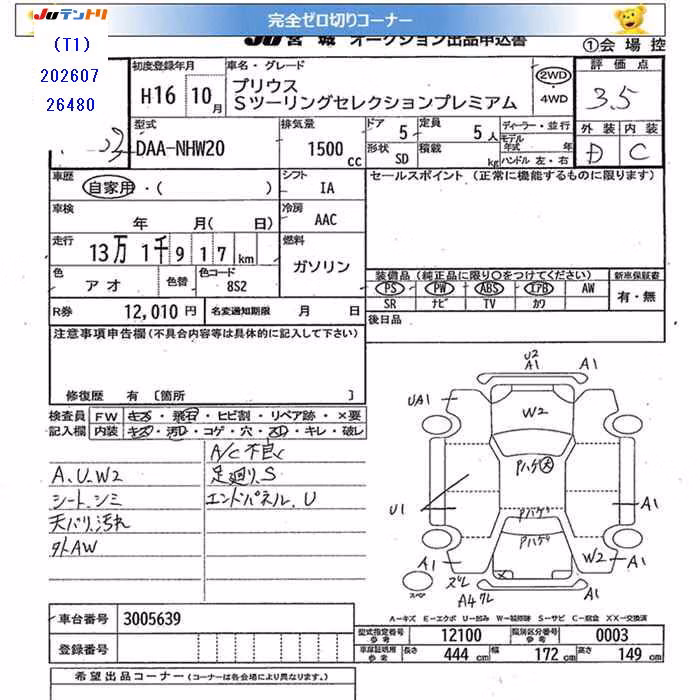 JUテントリ
完全ゼロ切りコーナー
(T1)
202607
26480
JU宮城 オークション出品申込書
①会場控
初度登録年月
車名・グレード
評価点
H16 10月
プリウス
Sツーリングセレクションプレミアム
2WD
・
4WD
3.5
型式
排気量
ドア 5
定員 5人
ディーラー・並行
外装 内装
DAA-NHW20
1500cc
形状 SD
積載 kg
モデル年式 年
ハンドル 左・右
D C
車歴
自家用・( )
シフト
IA
セールスポイント (正常に機能するものに限ります)
車検
年 月( 日)
冷房
AAC
走行
13万1千917km
燃料
ガソリン
色
アオ
色替
色コード
8S2
装備品(純正品に限り○をつけてください)
新車保証書
PS PW ABS エアB AW
SR ナビ TV カワ
有・無
R券 12,010円
名変通知期限 月 日
後日品
注意事項申告欄(不具合内容等は具体的に記入して下さい)
修復歴 有 〔箇所 〕
検査員
記入欄
FW キズ・飛石・ヒビ割・リペア跡・×要
内装 キズ・汚レ・コゲ・穴・スレ・キレ・破レ
A/C不良
A、U、W2
足廻り、S
シート、シミ
エンドパネル、U
天バリ、汚れ
外AW
U2
A1
A1
UA1
W2
Pハゲ大
U1
Pハゲ
A1
Pハゲ
W2
A1
A1
ズレ
A4ワレ
スペア
車台番号 3005639
登録番号
A-キズ E-エクボ U-凹み W-補修跡 S-サビ C-腐食 XX-交換済
型式指定番号参考 12100
類別区分番号参考 0003
車庫証明用参考 長さ 444cm 幅 172cm 高さ 149cm
希望出品コーナー(コーナーは各会場により異なります。)